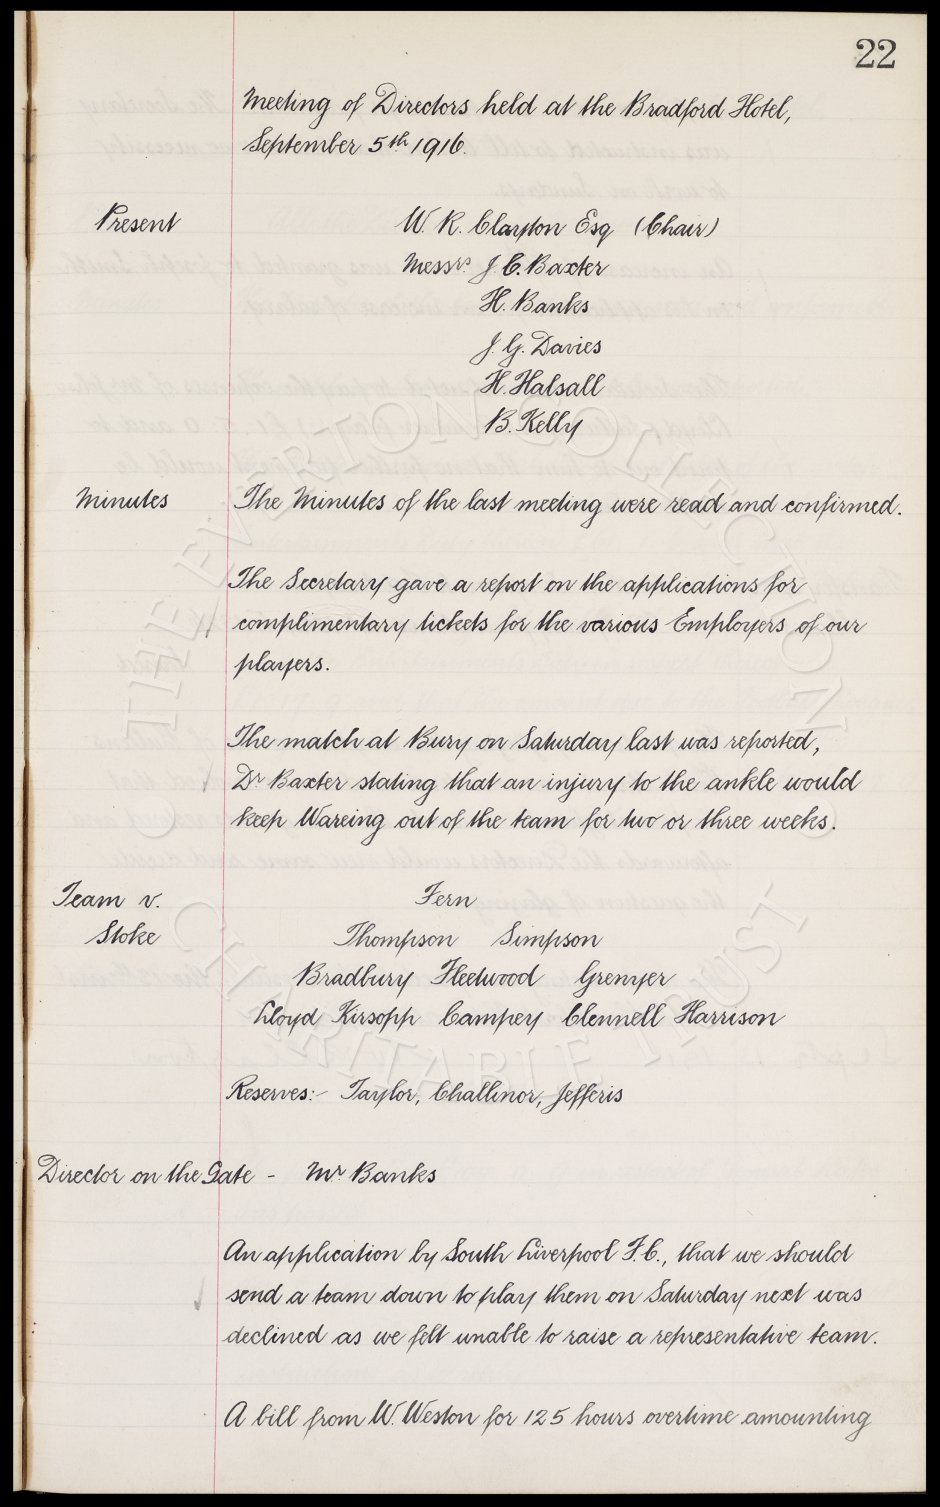 22
Meeting of Directors held at the Bradford Hotel,
September 5th 1916.
Present
W. R. Clayton Esq (Chair)
Messrs. J. C. Baxter
H. Banks
J. G. Davies
H. Halsall
B. Kelly
Minutes
The Minutes of the last meeting were read and confirmed.
The Secretary gave a report on the applications for
complimentary tickets for the various Employers of our
players.
The match at Bury on Saturday last was reported,
Dr Baxter stating that an injury to the ankle would
keep Wareing out of the team for two or three weeks.
Team v.
Stoke
Fern
Thompson Simpson
Bradbury Fleetwood Grenyer
Lloyd Kirsopp Campey Clennell Harrison
Reserves:- Taylor, Challinor, Jefferis
Director on the Gate - Mr. Banks
An application by South Liverpool F.C., that we should
send a team down to play them on Saturday next was
declined as we felt unable to raise a representative team.
A bill from W. Weston for 125 hours overtime amounting
THE EVERTON COLLECTION
CHARITABLE TRUST